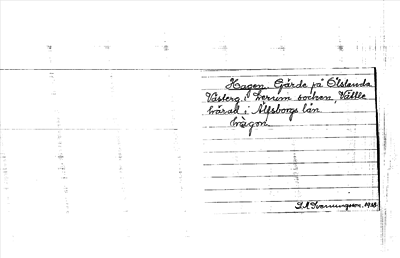 Hagen, Gärde på Ölslanda
Västerg. i Lerum socken, Vättle
härad i Älfsborgs län
Wägon
S.A. Svenningson. 1928